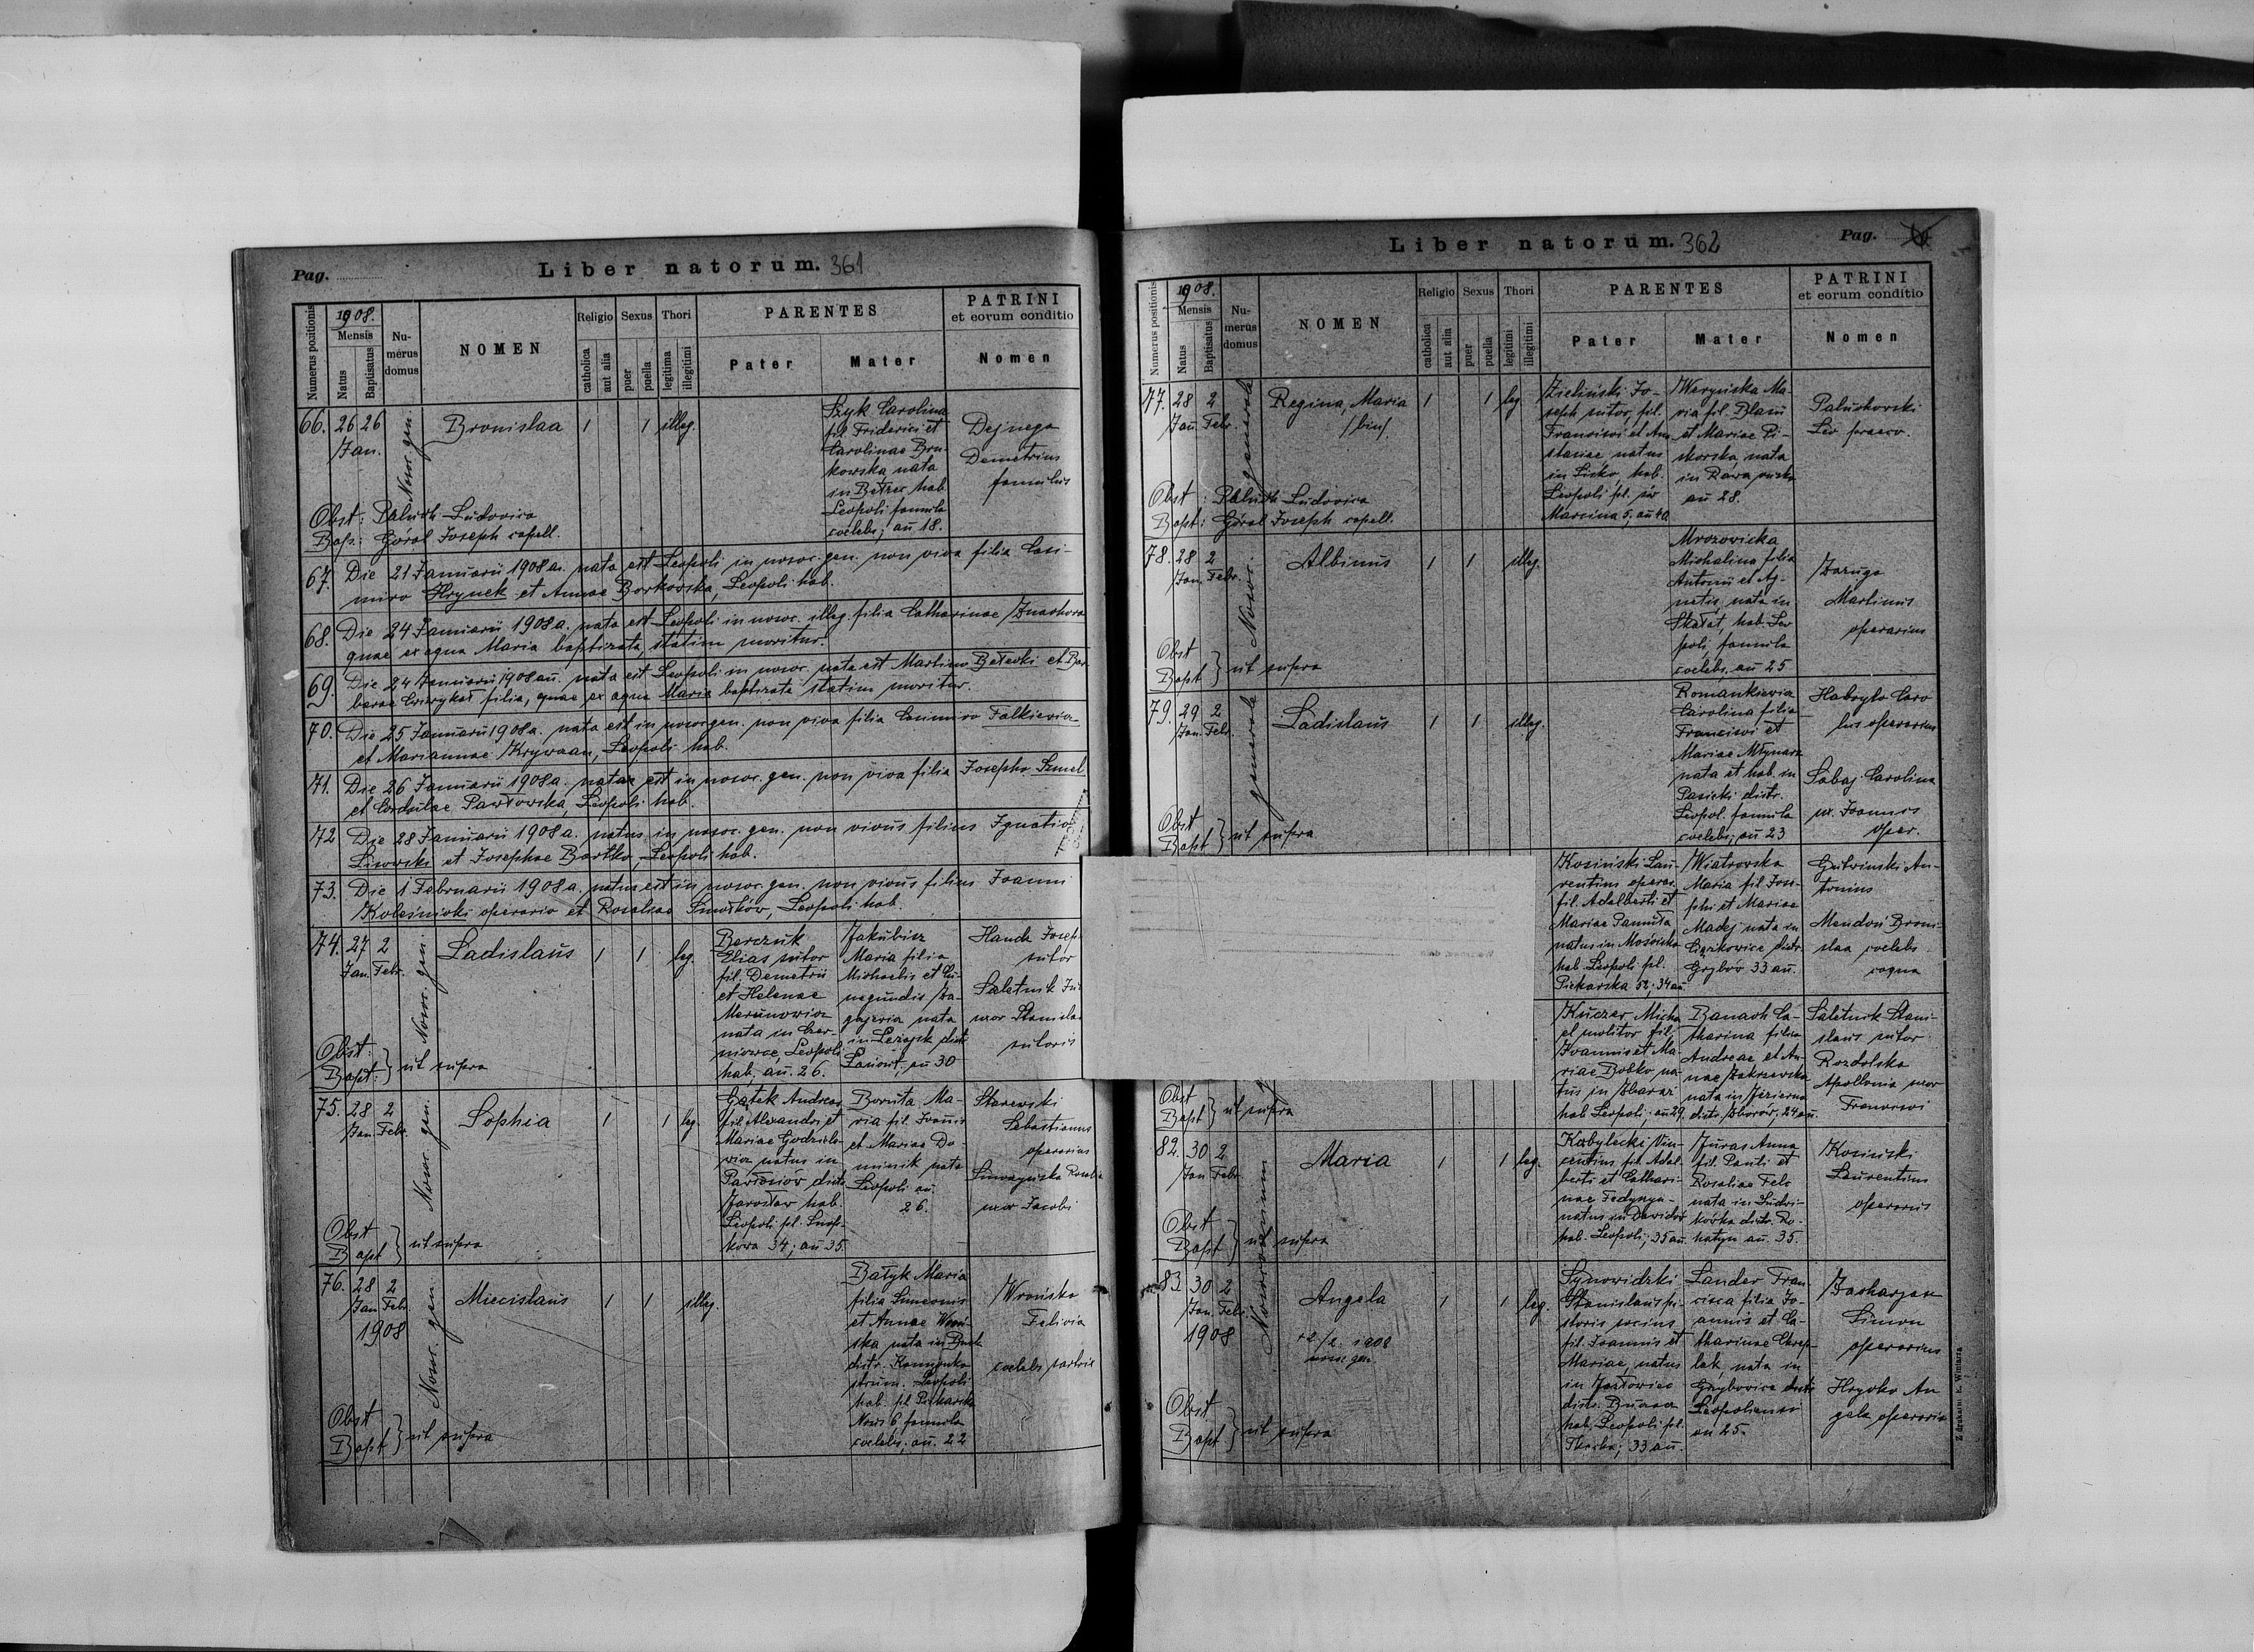 Pag.
Liber natorum. 361
Numerus positionis
1908.
Mensis
Natus
Baptisatus
Numerus domus
NOMEN
Religio
catholica
aut alia
Sexus
puer
puella
Thori
legitima
illegitimi
PARENTES
Pater
Mater
PATRINI
et eorum conditio
Nomen
66. 26 26
Jan.
Nosoc. gen.
Bronislaa
1 1 illeg.
Szyk Carolina
fil. Friderici et
Carolinae
nata
hab.
Leopoli famula
coelebs; an 18.
Dejnega
Demetrius
famulus
Obst: Paluch Ludovica
Bap.: Góral Joseph capell.
67. Die 21 Januarii 1908 a. nata est Leopoli in nosoc. gen. non viva filia Casi-
miro Hrynek et Annae Borkowska, Leopoli hab.
68. Die 24 Januarii 1908 a. nata est Leopoli in nosoc. illeg. filia Catharinae
quae ex aqua Maria baptizata statim moritur.
69. Die 24 Januarii 1908 an. nata est Leopoli in nosoc. nata est Martino et Bar-
barae filia, quae ex aqua Maria baptizata statim moritur.
70. Die 25 Januarii 1908 a. nata est in nosoc. gen. non viva filia Casimiro Falkiewicz
et Mariannae Leopoli hab.
71. Die 26 Januarii 1908 a. natae est in nosoc. gen. non viva filia Josepho Szmel
et Cordulae Pawłowska, Leopoli hab.
72 Die 28 Januarii 1908 a. natus in nosoc. gen. non vivus filius Ignatio
Lisowski et Josephae Bartko, Leopoli hab.
73. Die 1 Februarii 1908 a. natus est in nosoc. gen. non vivus filius Joanni
Koleśnicki operario et Rosaliae Leopoli hab.
74. 27 2
Jan. Febr.
Nosoc. gen.
Ladislaus
1 1 leg.
Berczuk
Elias sutor
fil. Demetrii
et Helenae
Merunowicz
nata in Czer-
Leopoli
hab, an. 26.
Jakubisz
Maria filia
Michaelis et Cu-
negundis Za-
nata
in Leżajsk distr.
Łańcut, an 30
Josep
sutor
Saletnik
uxor Stanislai
sutoris
Obst:
Bapt: } ut supra
75. 28 2
Jan. Febr.
Nosoc. gen.
Sophia
1 1 leg.
Gątek Andreas
fil. Alexandri et
Mariae
natus in
Pawłosiów distr.
Jarosław hab.
Leopoli pl.
34; an 35.
Boruta Ma-
ria fil. Joannis
et Mariae Do-
minik nata
Leopoli an.
26.
Starewski
Sebastianus
operarius
uxor Jacobi
Obst
Bapt } ut supra
76. 28 2
Jan Febr.
1908
Nosoc. gen.
Miecislaus
1 1 illeg.
Bałyk Maria
filia Simeonis
et Annae
nata in
distr. Kamionka
strum. Leopoli
hab. pl Piekarska
6 famula
coelebs; an. 22
Wrońska
Felicia
coelebs sartrix
Obst
Bapt } ut supra
Liber natorum. 362
Pag.
Numerus positionis
1908.
Mensis
Natus
Baptisatus
Numerus domus
NOMEN
Religio
catholica
aut alia
Sexus
puer
puella
Thori
legitimi
illegitimi
PARENTES
Pater
Mater
PATRINI
et eorum conditio
Nomen
77. 28 2
Jan. Febr.
generale
Regina, Maria
/bin/
1 1 leg.
Zieliński Jo-
seph sutor, fil.
Francisci et Ana-
stasiae natus
in Lisko, hab.
Leopoli pl. św
Marcina 5, an 40
Weryńska Ma-
ria fil. Blasii
et Mariae Pi-
skorska, nata
in Rawa ruska
an 28.
Paluchowski
Leo
Obst: Paluch Ludovica
Bapt: Góral Joseph capell.
78. 28 2
Jan. Febr.
Nosoc.
Albinus
1 1 illeg.
Mrozowicka
Michalina filia
Antonii et Ag-
netis, nata in
Skałat, hab. Leo
poli, famula
coelebs, an 25
Zaruga
Martinus
operarius
Obst
Bapt } ut supra
79. 29 2
Jan. Febr.
generale
Ladislaus
1 1 illeg.
Romankiewicz
Carolina filia
Francisci et
Mariae Młynarz
nata et hab. in
Pasieki distr.
Leopol. famula
coelebs; an 23
Habryło Caro
lus operarius
Sabaj Carolina
ux. Joannis
oper.
Obst
Bapt } ut supra
Kosiński Lau-
rentius operar.
fil. Adalberti et
Mariae Panuta
natus in Mościska
hab. Leopoli pl.
Piekarska 52; 34 an.
Wiatrowska
Maria fil. Jose-
phi et Mariae
Madej nata in
Ciężkowice distr.
Grybów 33 an.
Gutwiński An-
tonius
Broni-
slaa coelebs
coqua
Kuczer Micha
el molitor fil.
Joannis et Ma-
riae Bobko na-
tus in Zbaraż
hab Leopoli; an 29.
Banach Ca-
tharina filia
Andreae et An-
nae Zakrzewska
nata in Jezierna
distr. Zborów, 24 an.
Saletnik Stani-
slaus sutor
Rozdolska
Apollonia uxor
Francisci
Obst
Bapt } ut supra
82. 30 2
Jan Febr
Nosocomium
Maria
1 1 leg.
Kobylecki Vin-
centius fil. Adal-
berti et Cathari-
nae
natus in Dawidów
hab. Leopoli; 35 an.
Juras Anna
fil. Pauli et
Rosaliae Fels
nata in
distr. Ro-
hatyn an. 35.
Kosiński
Laurentius
operarius
Obst
Bapt } ut supra
83. 30 2
Jan. Febr.
1908
Angela
+2/2. 1908
nosoc. gen.
1 1 leg.
Synowidzki
Stanislaus pi-
storis socius
fil. Joannis et
Mariae, natus
in Jazłowiec
distr. Buczacz
hab. Leopoli pl.
33 an.
Lander Fran
cisca filia Jo-
annis et Ca-
tharinae
nata in
Grzybowice distr.
Leopoliensi
an 25.
Zacharjasz
Simon
operarius
Hryćko An
gela operaria
Obst
Bapt } ut supra
Z drukarni E. Winiarza